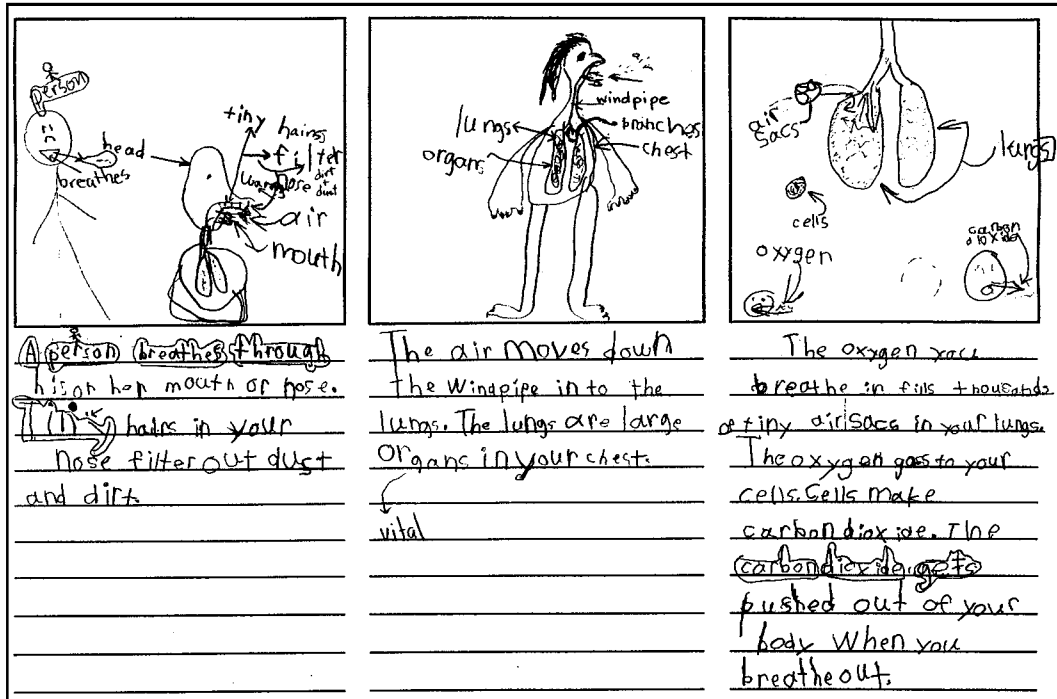 person
head
breathes
tiny hairss
filter
dirt + dust
nose
air
mouth
A person breathes through
his or her mouth or nose.
Tiny hairs in your
nose filter out dust
and dirt.
windpipe
lungs
branches
organs
chest
The air moves down
the windpipe in to the
lungs. The lungs are large
organs in your chest.
vital
air
sacs
lungs
cells
oxygen
carbon
dioxide
The oxygen you
breathe in fills thousands
of tiny air sacs in your lungs.
The oxygen goes to your
cells. Cells make
carbon dioxide. The
carbon dioxide gets
pushed out of your
body when you
breathe out.